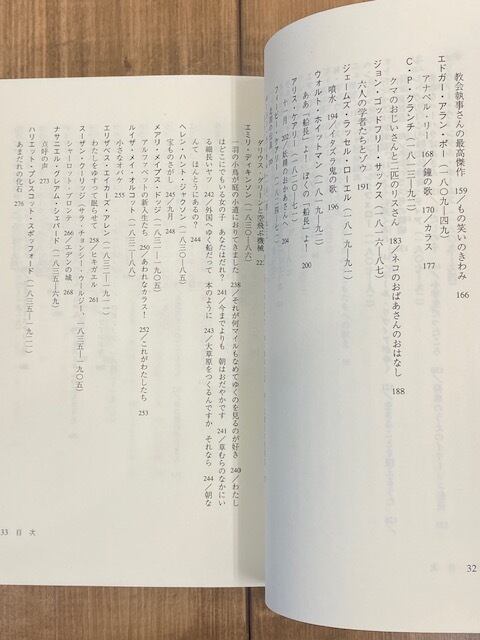 教会執事さんの最高傑作 159／もの笑いのきわみ 166
エドガー・アラン・ポー（一八〇九―四九）
アナベル・リー 168／鐘の歌 170／カラス 177
C・P・クランチ（一八一三―九二）
クマのおじいさんと二匹のリスさん 183／ネコのおばあさんのおはなし 188
ジョン・ゴッドフリー・サックス（一八一六―八七）
六人の学者たちとゾウ 191
ジェームズ・ラッセル・ローエル（一八一九―九一）
噴水 194／イタズラ鬼の歌 196
ウォルト・ホイットマン（一八一九―九二）
ああ「船長」よ！ ぼくの「船長」よ！ 200
アリス・ケアリー
十一月 202／妖精のおかあさんへ 204
32
ダリウス・グリーンと空飛ぶ機械
エミリ・ディキンソン（一八三〇―八六）
一羽の小鳥が庭の小道におりてきました 238／それが何マイルもなめてゆくのを見るのが好き 240／わたし
はどこにでもいる女の子 あなたはだれ？ 241／今までよりも 朝はおだやかです 241／草むらのなかにい
る細長いヤツ 242／外国へゆく船だって 本のように 243／大草原をつくるんですか それなら 244／朝な
んて ほんとうにあるの？ 244
ヘレン・ハント・ジャクソン（一八三〇―八五）
宝ものさがし 245／九月 248
メアリ・メイプス・ドッジ（一八三一―一九〇五）
アルファベットの新入生たち 250／あわれなカラス！ 252／これがわたしたち 253
ルイザ・メイ・オルコット（一八三二―八八）
小さなオバケ 255
エリザベス・エイカーズ・アレン（一八三二―一九一一）
わたしをゆすって眠らせて 258／ヒキガエル 261
スーザン・クーリッジ（サラ・チョンシー・ウールジー、一八三五―一九〇五）
シャーロット・ブロンテ 266／エデンの城 268
ナサニエル・グレアム・シェパード（一八三五―六九）
点呼の声 273
ハリエット・プレスコット・スポッフォード（一八三五―一九二一）
あまだれの化石 276
33 目 次